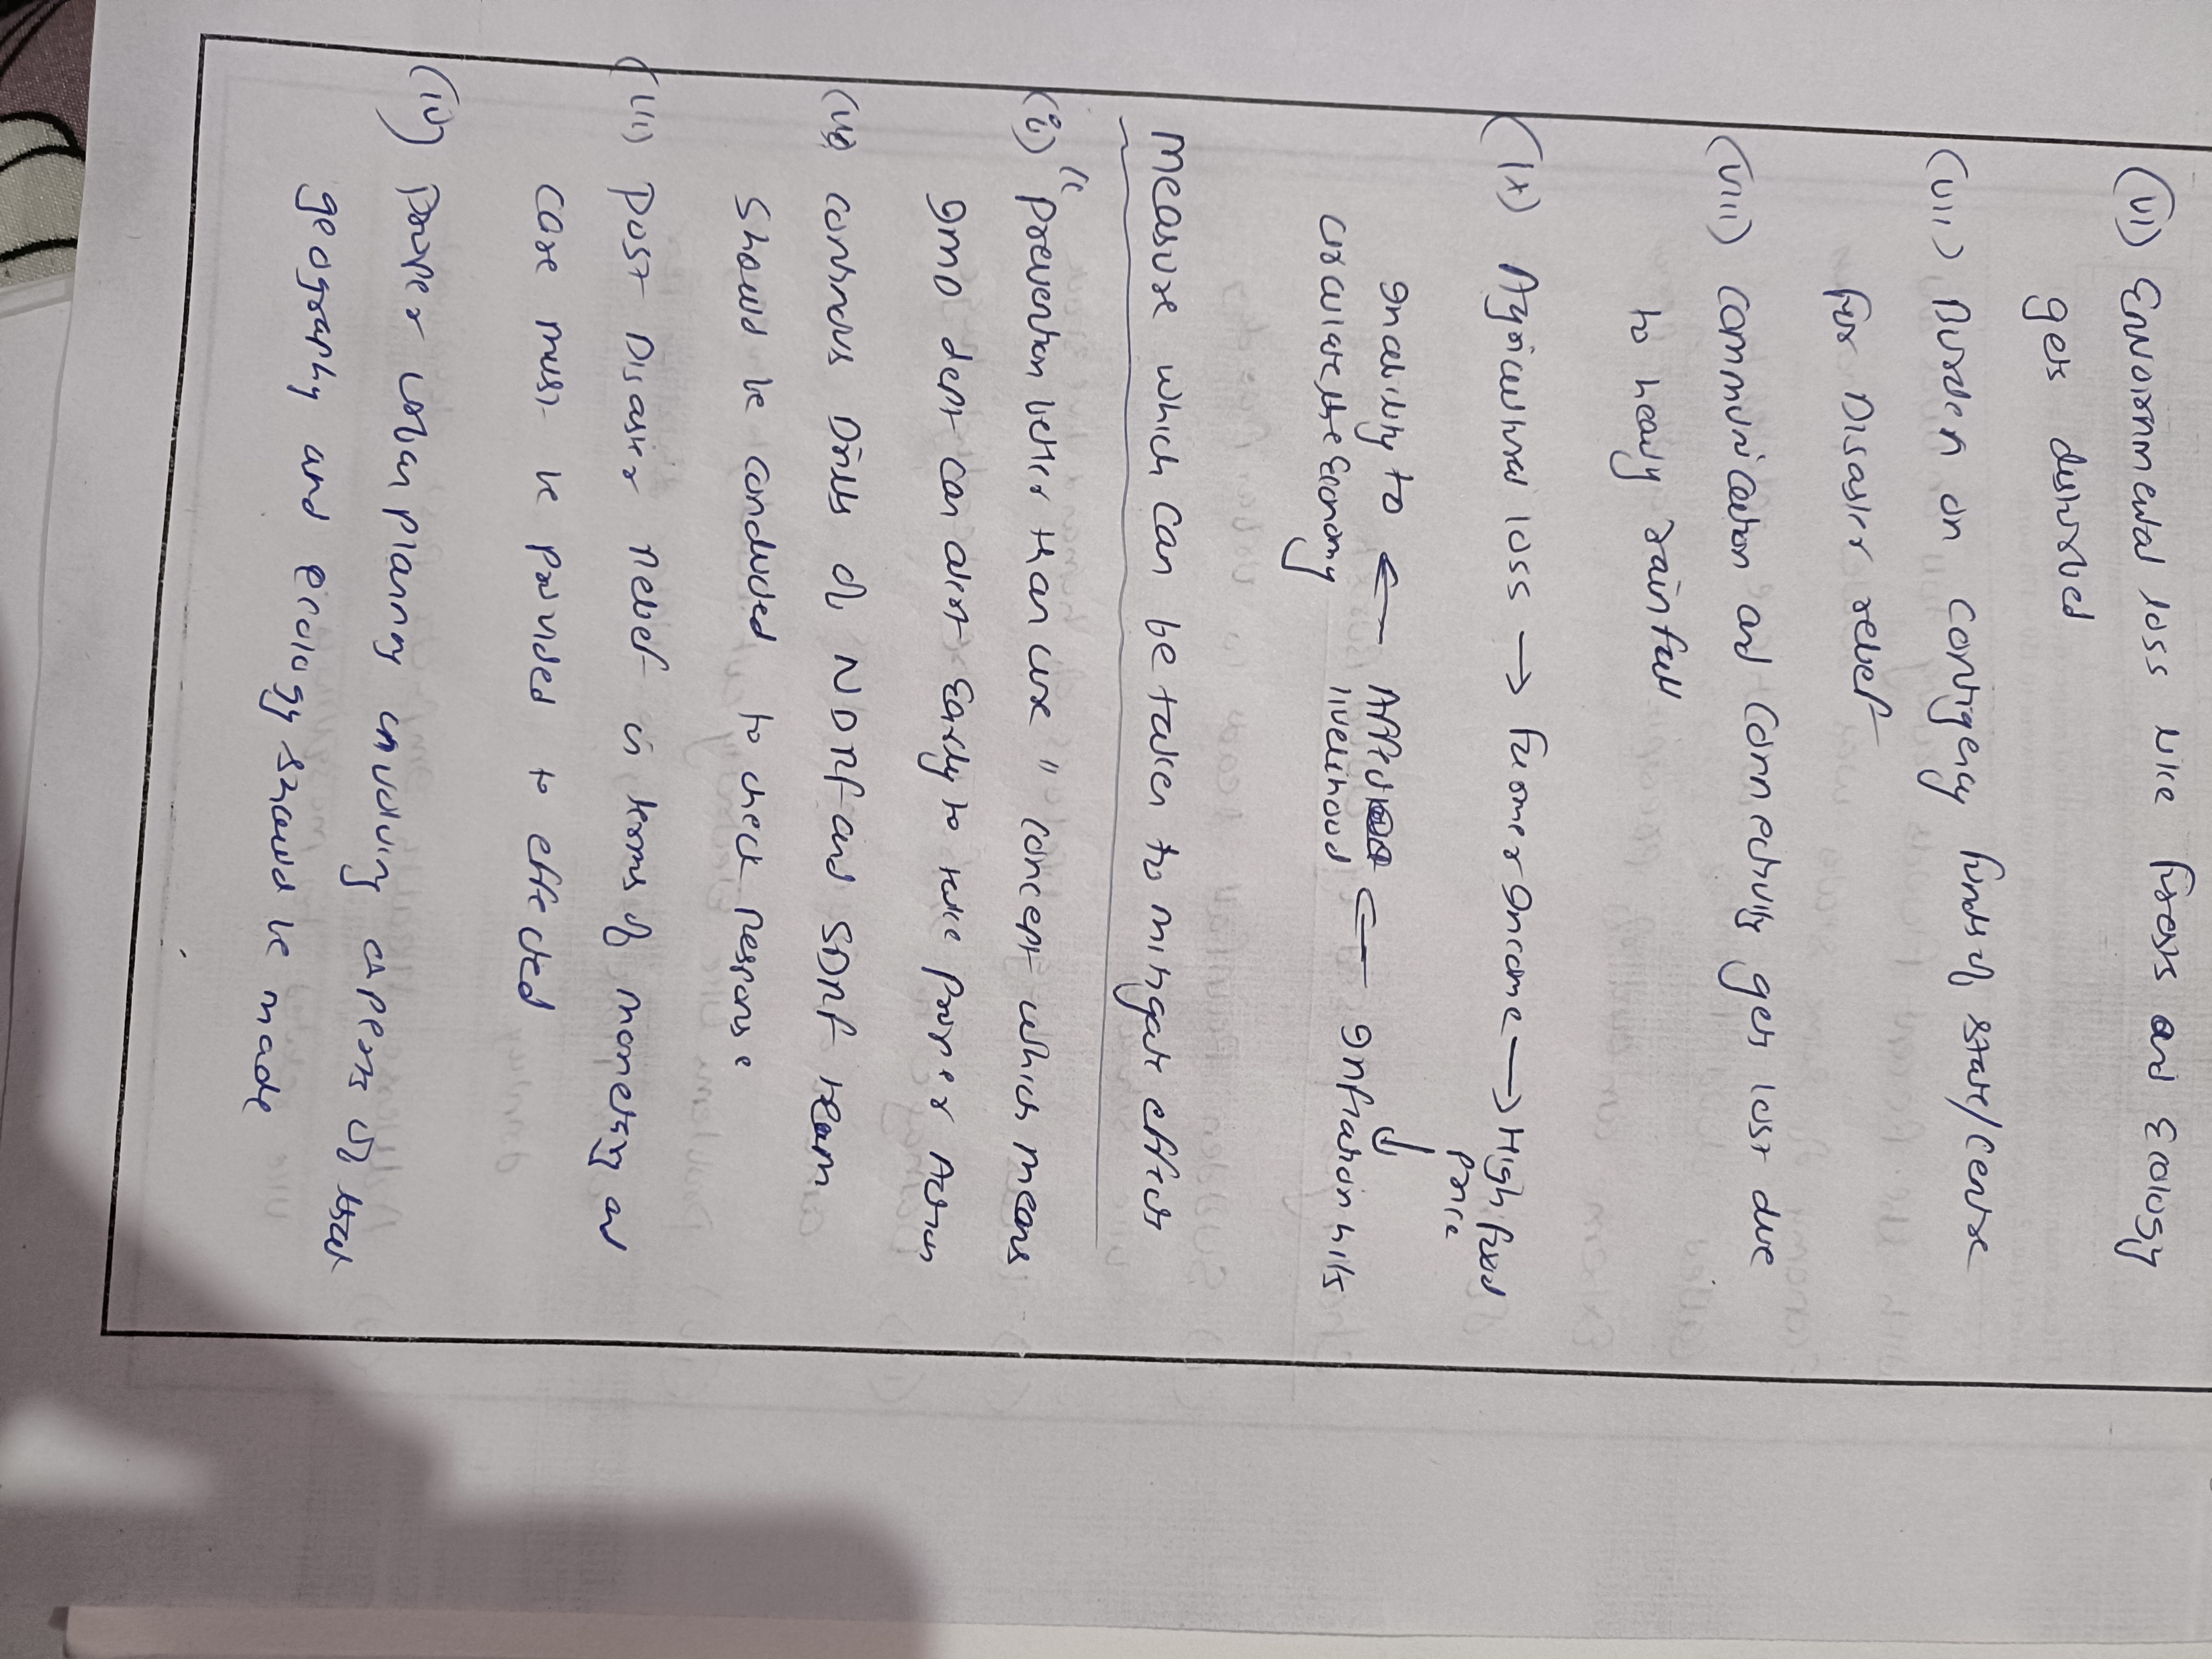 (vi) Envoirnmental loss like forests and Ecology
gets disturbed
(vii) Burden on contigency funds of state/centre
for Disaster relief
(viii) communication and connectivity gets lost due
to heavy rainfall
(ix) Agricultural loss → Farmer Income → High food
price
↓
Inability to ← Affects ← Inflation hits
circulate the Economy livelihood
Measure which can be taken to mitigate effects
(i) "Prevention better than cure" concept which means
IMD dept can alert Early to take proper Action
(ii) continous Drills of NDRF and SDRF team
should be conducted to check Response
(iii) Post Disaster Relief in terms of monetary and
care must be provided to effected
(iv) Proper urban planning involving experts of that
geography and ecology should be made